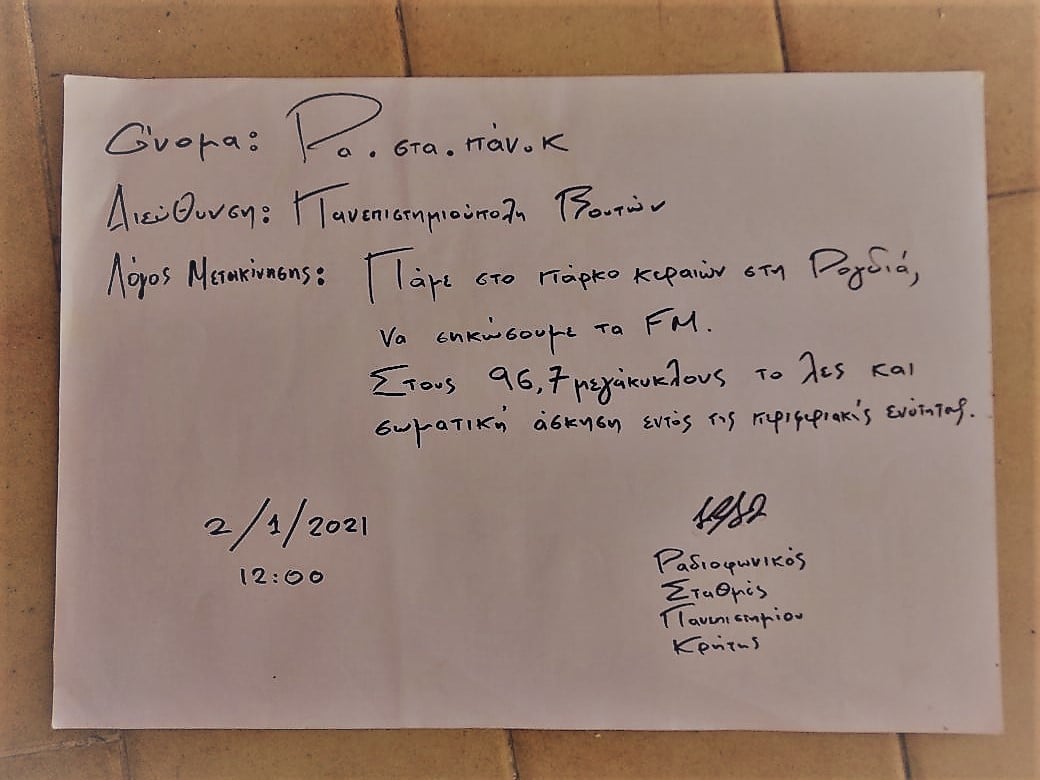 Όνομα: Ρα.στα.πάν.κ
Διεύθυνση: Πανεπιστημιούπολη Βουτών
Λόγος Μετακίνησης: Πάμε στο πάρκο κεραιών στη Ρογδιά,
Να σηκώσουμε τα FM.
Στους 96,7 μεγάκυκλους το λες και
σωματική άσκηση εντός της περιφεριακής ενότητας.
2/1/2021
12:00
Ραδιοφωνικός
Σταθμός
Πανεπιστημίου
Κρήτης